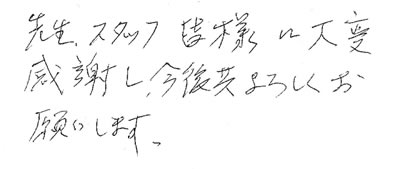 先生、スタッフ皆様に大変
感謝し、今後共よろしくお
願いします。